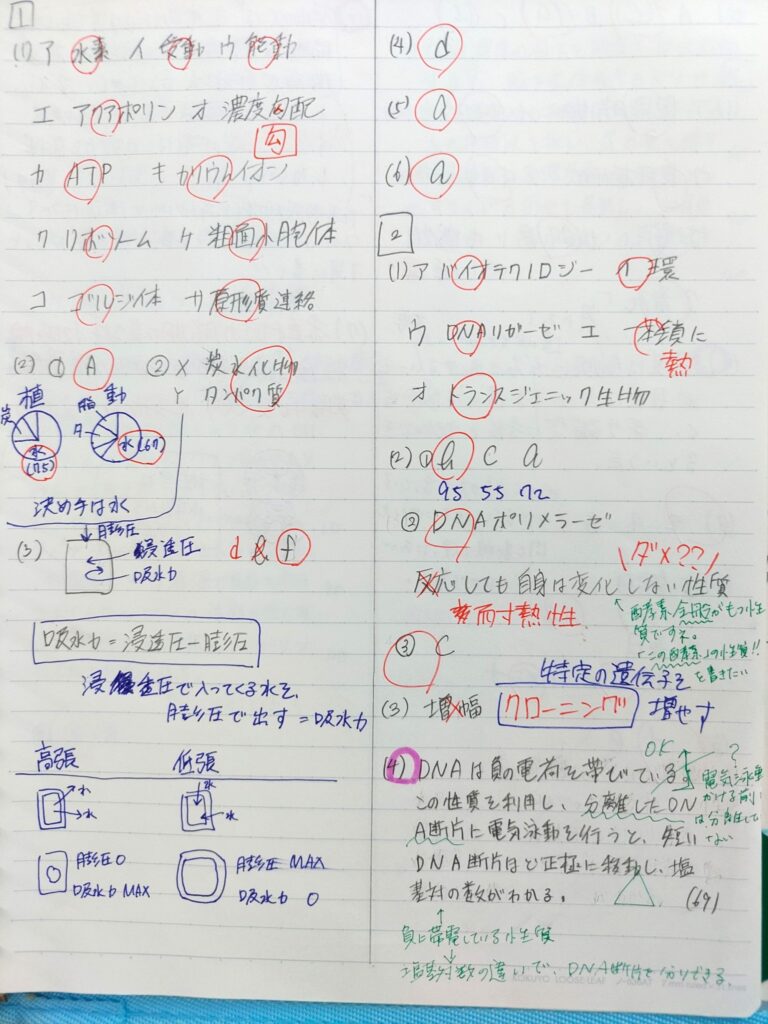 1
(1) ア 水素 イ 受動 ウ 能動
エ アクアポリン オ 濃度匂配
勾
カ ATP キ カリウムイオン
ク リボソーム ケ 粗面小胞体
コ ゴルジ体 サ 原形質連絡
(2) ① A ② X 炭水化物
Y タンパク質
植 動
炭 脂
タ
水 水(67)
(75)
決め手は水
↓膨圧
(3) 浸透圧 d f
吸水力
吸水力=浸透圧-膨圧
浸透圧で入ってくる水を
膨圧で出す =吸水力
高張 低張
水 水
水 水
膨圧0 膨圧 MAX
吸水力 MAX 吸水力 0
(4) d
(5) a
(6) a
2
(1) ア バイオテクノロジー イ 環
ウ DNAリガーゼ エ 一本鎖に
熱
オ トランスジェニック生物
(2) ① b C a
95 55 72
② DNAポリメラーゼ
\ダメ??/
反応しても自身は変化しない性質
耐熱性
↑酵素全般がもつ性
質ですネ。
「この酵素」の性質!!
を書きたい
③ C
特定の遺伝子を
(3) 増幅 クローニング 増やす
(4) DNAは負の電荷を帯びている。
OK
?
この性質を利用し、分離したDN
A断片に電気泳動を行うと、短い
電気泳動
かける前に
は分離して
ない
DNA断片ほど正極に移動し、塩
基対の数がわかる。
(69)
負に帯電している性質
塩基対数の違いで、DNA断片を分りできる
KOKUYO LOOSE-LEAF